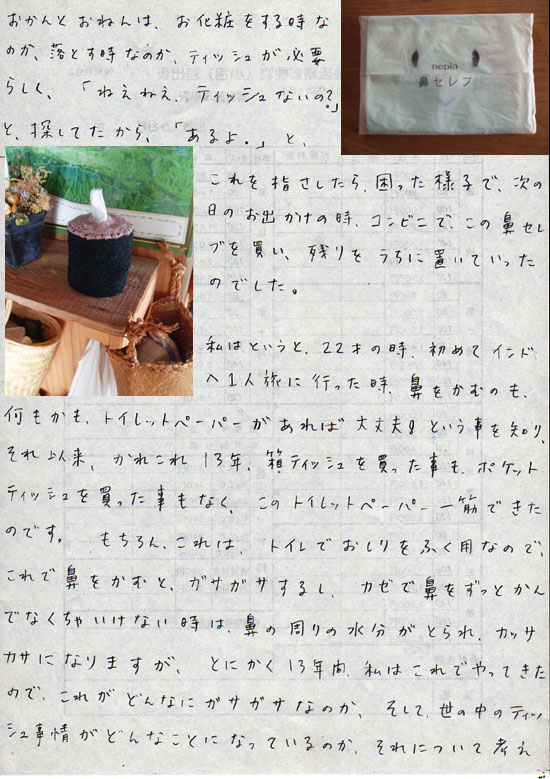 おかんとおねんは、お化粧をする時な
のか、落とす時なのか、ティッシュが必要
らしく、「ねえねえ、ティッシュないの?」
と、探してたから、「あるよ。」と、
nepia
鼻セレブ
これを指さしたら、困った様子で、次の
日のお出かけの時、コンビニで、この鼻セレ
ブを買い、残りをうちに置いていった
のでした。
私はというと、22才の時、初めてインド
へ1人旅に行った時、鼻をかむのも、
何もかも、トイレットペーパーがあれば大丈夫!という事を知り、
それ以来、かれこれ13年、箱ティッシュを買った事も、ポケット
ティッシュを買った事もなく、このトイレットペーパー一筋できた
のです。 もちろん、これは、トイレでおしりをふく用なので、
これで鼻をかむと、ガサガサするし、カゼで鼻をずっとかん
でなくちゃいけない時は、鼻の周りの水分がとられ、カッサ
カサになりますが、とにかく13年間、私はこれでやってきた
ので、これがどんなにガサガサなのか、そして、世の中のティッ
シュ事情がどんなことになっているのか、それについて考え